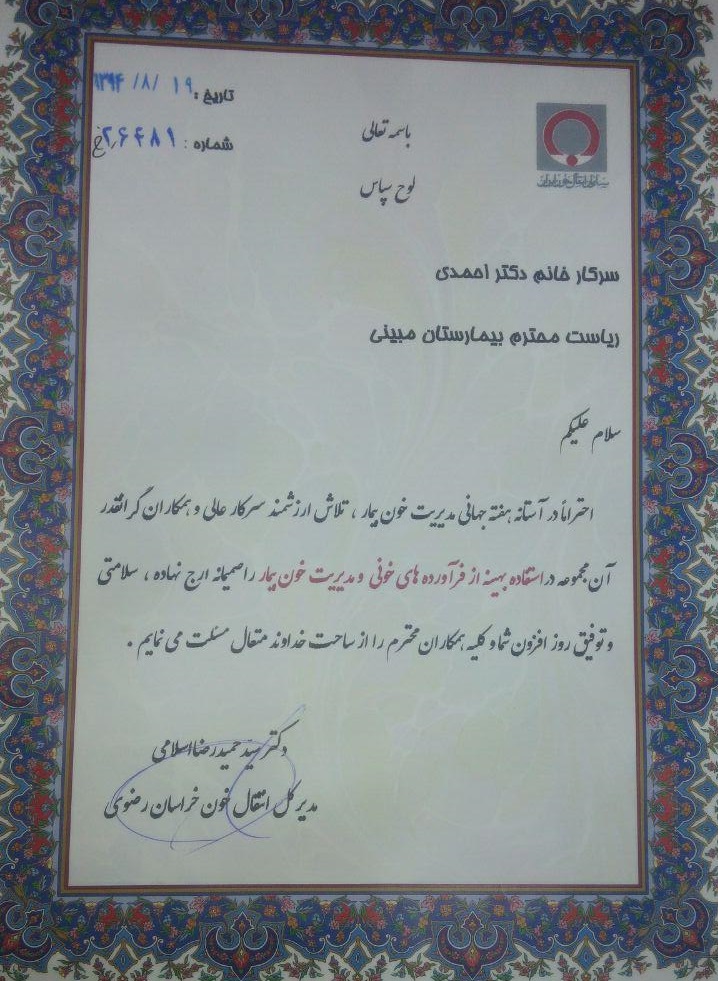 تاریخ : ۱۳۹۴/۸/۱۹
شماره : ۲۶۴۸۱/خ
باسمه تعالی
سازمان انتقال خون ایران
لوح سپاس
سرکار خانم دکتر احمدی
ریاست محترم بیمارستان مبینی
سلام علیکم
احتراماً در آستانه هفته جهانی مدیریت خون بیمار ، تلاش ارزشمند سرکار عالی و همکاران گرانقدر
آن مجموعه در استفاده بهینه از فرآورده های خونی و مدیریت خون بیمار را صمیمانه ارج نهاده ، سلامتی
و توفیق روز افزون شما و کلیه همکاران محترم را از ساحت خداوند متعال مسئلت می نمایم .
دکتر سید حمیدرضا اسلامی
مدیر کل انتقال خون خراسان رضوی